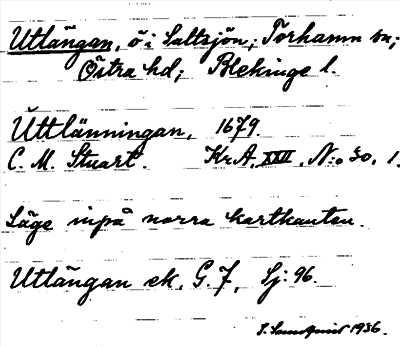 Utlängan, ö i Saltsjön; Torhamn sn;
Östra hd; Blekinge l.
Uttlänningan, 1679.
C. M. Stuart. Kr.A. XXII. N:o 30. 1.
Läge inpå norra kartkanten.
Utlängan ek. G. 7, Sj: 96.
1936.